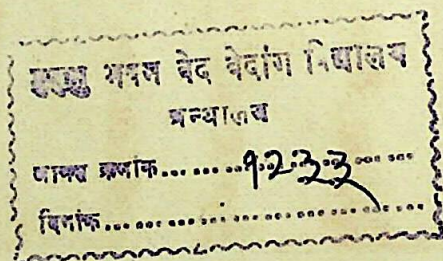 मुमुक्षु भवन वेद वेदांग विद्यालय
ग्रन्थालय
आगत क्रमांक......1233......
दिनांक......